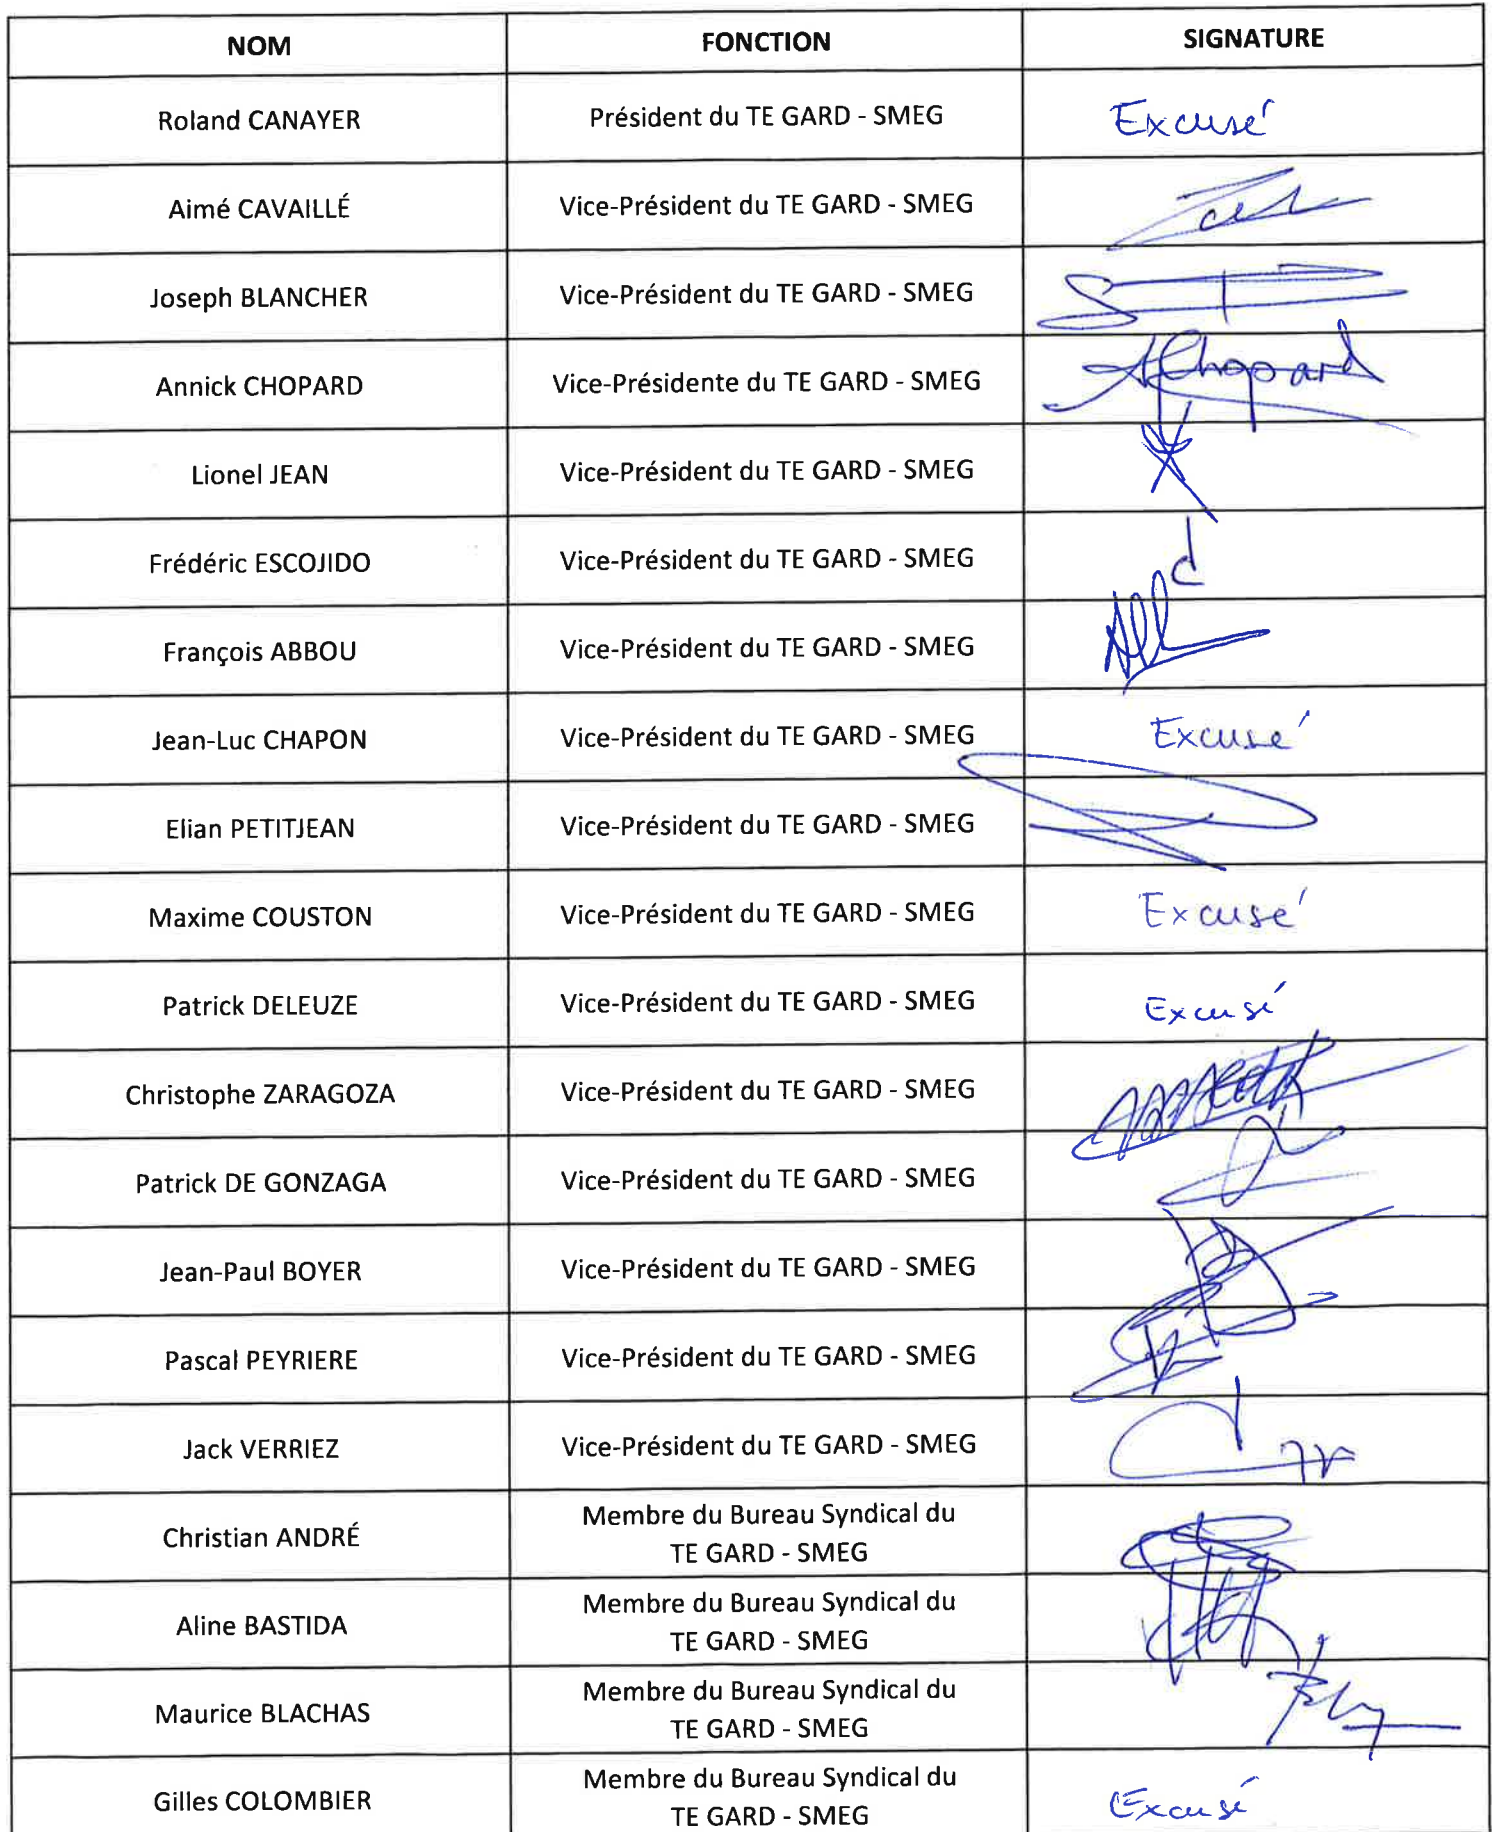 NOM FONCTION SIGNATURE
Roland CANAYER Président du TE GARD - SMEG Excusé
Aimé CAVAILLÉ Vice-Président du TE GARD - SMEG
Joseph BLANCHER Vice-Président du TE GARD - SMEG
Annick CHOPARD Vice-Présidente du TE GARD - SMEG AChopard
Lionel JEAN Vice-Président du TE GARD - SMEG
Frédéric ESCOJIDO Vice-Président du TE GARD - SMEG
François ABBOU Vice-Président du TE GARD - SMEG
Jean-Luc CHAPON Vice-Président du TE GARD - SMEG Excusé
Elian PETITJEAN Vice-Président du TE GARD - SMEG
Maxime COUSTON Vice-Président du TE GARD - SMEG Excusé
Patrick DELEUZE Vice-Président du TE GARD - SMEG Excusé
Christophe ZARAGOZA Vice-Président du TE GARD - SMEG
Patrick DE GONZAGA Vice-Président du TE GARD - SMEG
Jean-Paul BOYER Vice-Président du TE GARD - SMEG
Pascal PEYRIERE Vice-Président du TE GARD - SMEG
Jack VERRIEZ Vice-Président du TE GARD - SMEG
Christian ANDRÉ Membre du Bureau Syndical du
TE GARD - SMEG
Aline BASTIDA Membre du Bureau Syndical du
TE GARD - SMEG
Maurice BLACHAS Membre du Bureau Syndical du
TE GARD - SMEG
Gilles COLOMBIER Membre du Bureau Syndical du
TE GARD - SMEG Excusé